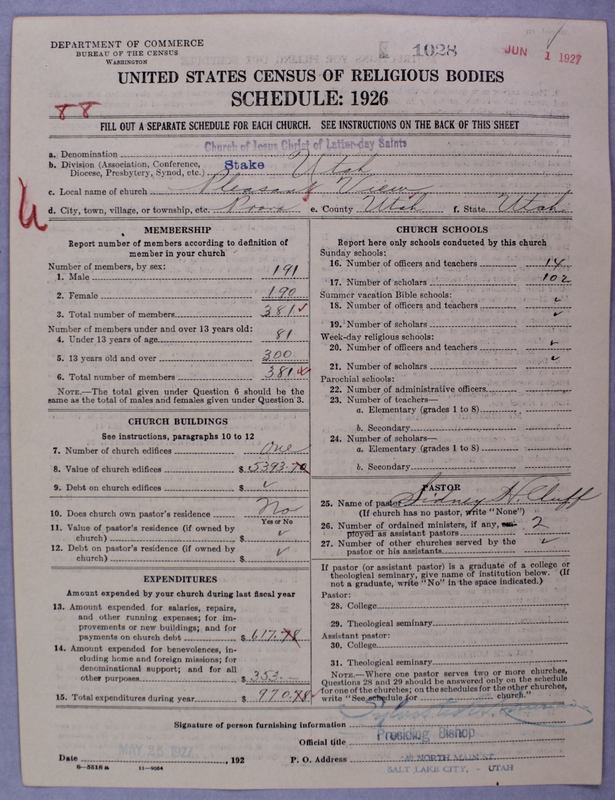 DEPARTMENT OF COMMERCE
BUREAU OF THE CENSUS
WASHINGTON
1028
JUN 1 1927
UNITED STATES CENSUS OF RELIGIOUS BODIES
SCHEDULE: 1926
88
FILL OUT A SEPARATE SCHEDULE FOR EACH CHURCH. SEE INSTRUCTIONS ON THE BACK OF THIS SHEET
a. Denomination Church of Jesus Christ of Latter-day Saints
b. Division (Association, Conference, Diocese, Presbytery, Synod, etc.) Stake Utah
c. Local name of church Pleasant View
d. City, town, village, or township, etc. Provo e. County Utah f. State Utah
MEMBERSHIP
Report number of members according to definition of
member in your church
Number of members, by sex:
1. Male 191
2. Female 190
3. Total number of members 381
Number of members under and over 13 years old:
4. Under 13 years of age 81
5. 13 years old and over 300
6. Total number of members 381
NOTE.—The total given under Question 6 should be
same as the total of males and females given under Question 3.
CHURCH BUILDINGS
See instructions, paragraphs 10 to 12
7. Number of church edifices One
8. Value of church edifices $ 5393.70
9. Debt on church edifices $
10. Does church own pastor's residence? No
Yes or No
11. Value of pastor's residence (if owned by
church) $
12. Debt on pastor's residence (if owned by
church) $
EXPENDITURES
Amount expended by your church during last fiscal year
13. Amount expended for salaries, repairs,
and other running expenses; for im-
provements or new buildings; and for
payments on church debt $ 617.78
14. Amount expended for benevolences, in-
cluding home and foreign missions; for
denominational support; and for all
other purposes $ 353.
15. Total expenditures during year $ 970.78
CHURCH SCHOOLS
Report here only schools conducted by this church
Sunday schools:
16. Number of officers and teachers 14
17. Number of scholars 102
Summer vacation Bible schools:
18. Number of officers and teachers
19. Number of scholars
Week-day religious schools:
20. Number of officers and teachers
21. Number of scholars
Parochial schools:
22. Number of administrative officers
23. Number of teachers—
a. Elementary (grades 1 to 8)
b. Secondary
24. Number of scholars—
a. Elementary (grades 1 to 8)
b. Secondary
PASTOR
25. Name of pastor Sidney H. Cluff
(If church has no pastor, write "None")
26. Number of ordained ministers, if any, em-
ployed as assistant pastors 2
27. Number of other churches served by the
pastor or his assistants
If pastor (or assistant pastor) is a graduate of a college or
theological seminary, give name of institution below. (If
not a graduate, write "No" in the space indicated.)
Pastor:
28. College
29. Theological seminary
Assistant pastor:
30. College
31. Theological seminary
NOTE.—Where one pastor serves two or more churches,
Questions 28 and 29 should be answered only on the schedule
for one of the churches; on the schedules for the other churches,
write "See schedule for church."
Signature of person furnishing information
Official title Presiding Bishop
Date MAY 25 1927, 192 P. O. Address NORTH MAIN ST.
SALT LAKE CITY, - UTAH
8-5518a 11-9054